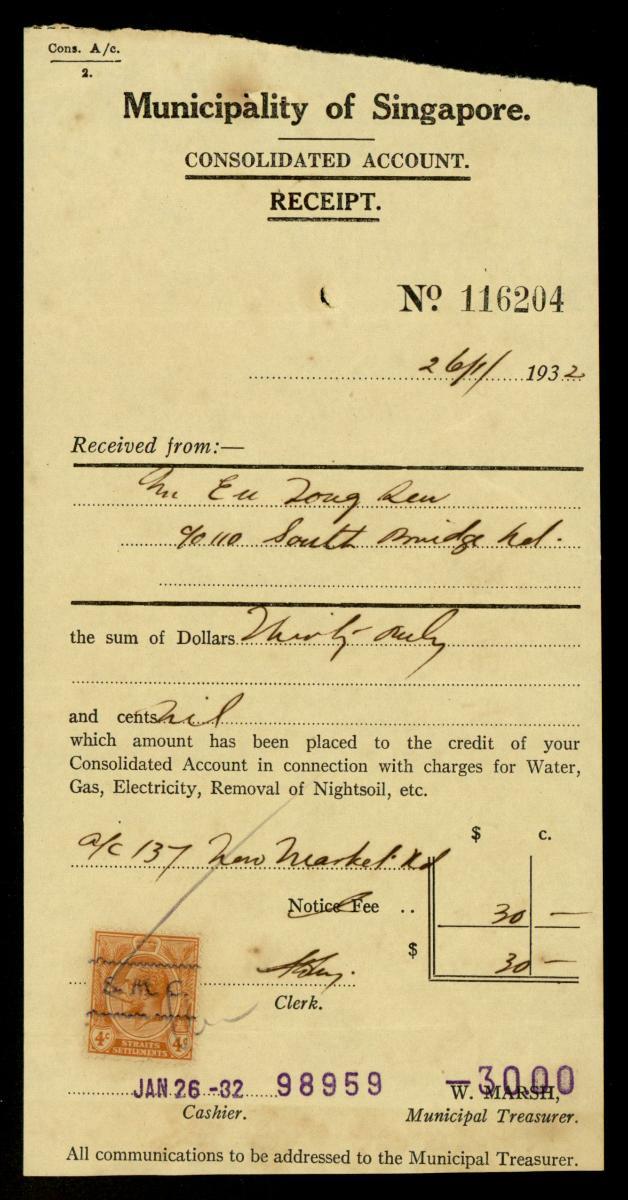 Cons. A/c.
2.
Municipality of Singapore.
CONSOLIDATED ACCOUNT.
RECEIPT.
No 116204
26/1/ 1932
Received from:—
Mr Eu Tong Sen
c/o 110 South Bridge Rd.
the sum of Dollars Thirty only
and cents nil
which amount has been placed to the credit of your
Consolidated Account in connection with charges for Water,
Gas, Electricity, Removal of Nightsoil, etc.
$ c.
a/c 137 New Market Rd
Notice Fee .. 30 —
$ 30 —
Clerk.
S. M. C.
4c 4c
STRAITS
SETTLEMENTS
JAN 26 -32 98959 —3000
W. MARSH,
Cashier. Municipal Treasurer.
All communications to be addressed to the Municipal Treasurer.